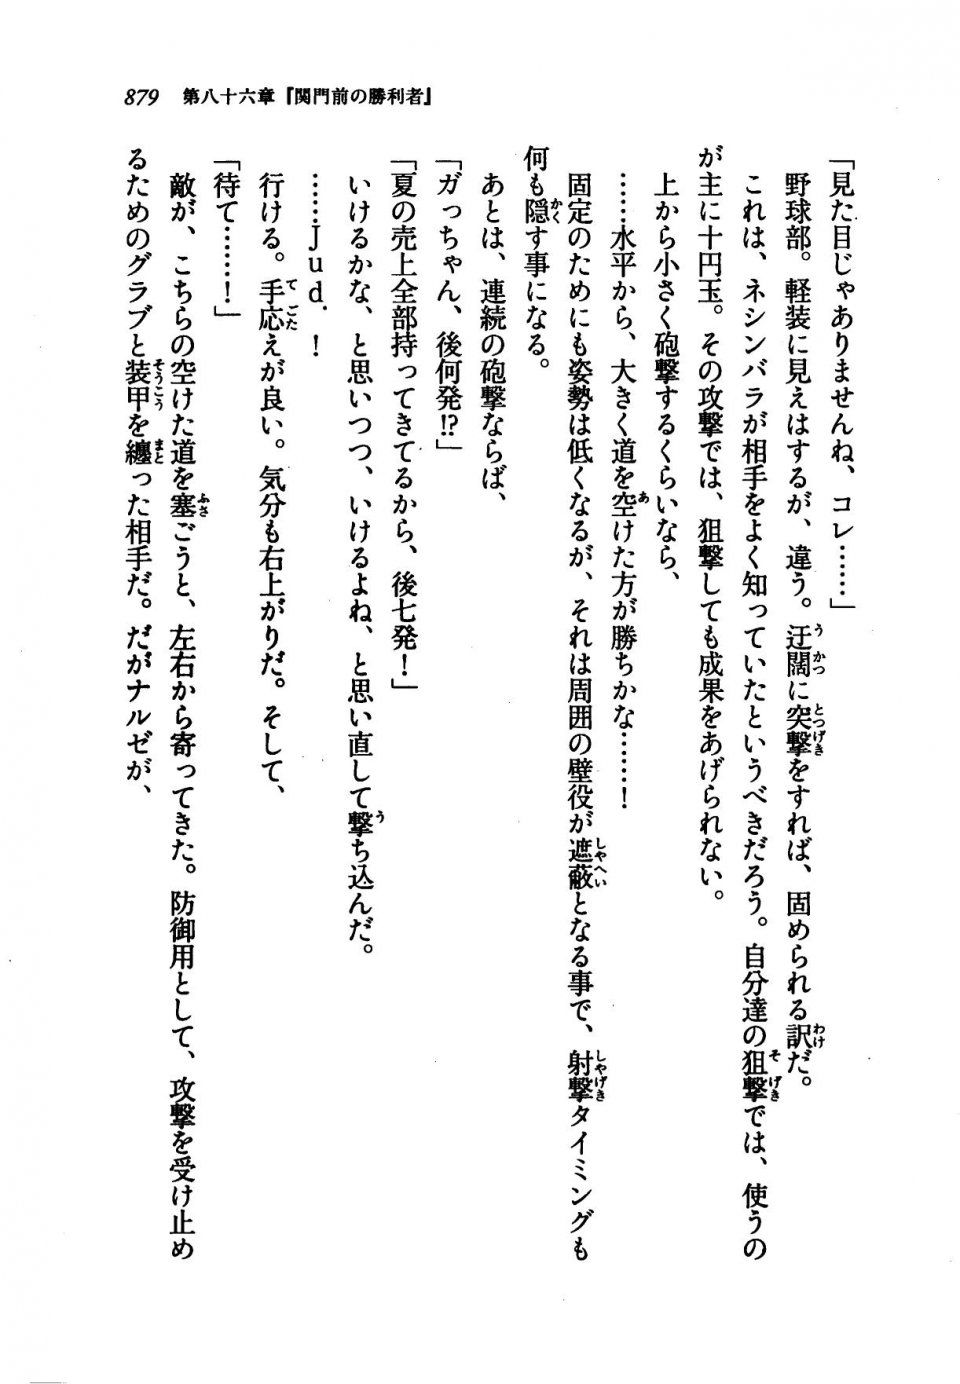 879 第八十六章『関門前の勝利者』
「見た目じゃありませんね、コレ……」
野球部。軽装に見えはするが、違う。迂闊に突撃をすれば、固められる訳だ。
これは、ネシンバラが相手をよく知っていたというべきだろう。自分達の狙撃では、使うの
が主に十円玉。その攻撃では、狙撃しても成果をあげられない。
上から小さく砲撃するくらいなら、
……水平から、大きく道を空けた方が勝ちかな……！
固定のためにも姿勢は低くなるが、それは周囲の壁役が遮蔽となる事で、射撃タイミングも
何も隠す事になる。
あとは、連続の砲撃ならば、
「ガっちゃん、後何発!?」
「夏の売上全部持ってきてるから、後七発！」
いけるかな、と思いつつ、いけるよね、と思い直して撃ち込んだ。
……Ｊｕｄ．！
行ける。手応えが良い。気分も右上がりだ。そして、
「待て……！」
敵が、こちらの空けた道を塞ごうと、左右から寄ってきた。防御用として、攻撃を受け止め
るためのグラブと装甲を纏った相手だ。だがナルゼが、